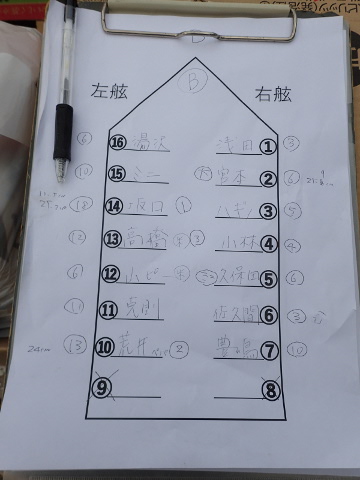 B
左舷 右舷
⑥ ⑯ 湯沢 浅田 ① ③
⑩ ⑮ ミニー 宮本 ② ⑥
⑭ 坂口 ① ハギノ ③ ⑤
⑫ ⑬ 高橋 小林 ④ ④
⑥ ⑫ 山ピー 久保田 ⑤ ⑥
⑩ ⑪ 克則 佐久間 ⑥ ③
⑬ ⑩ 荒井 ② 豊嶋 ⑦ ⑩
⑨ ⑧